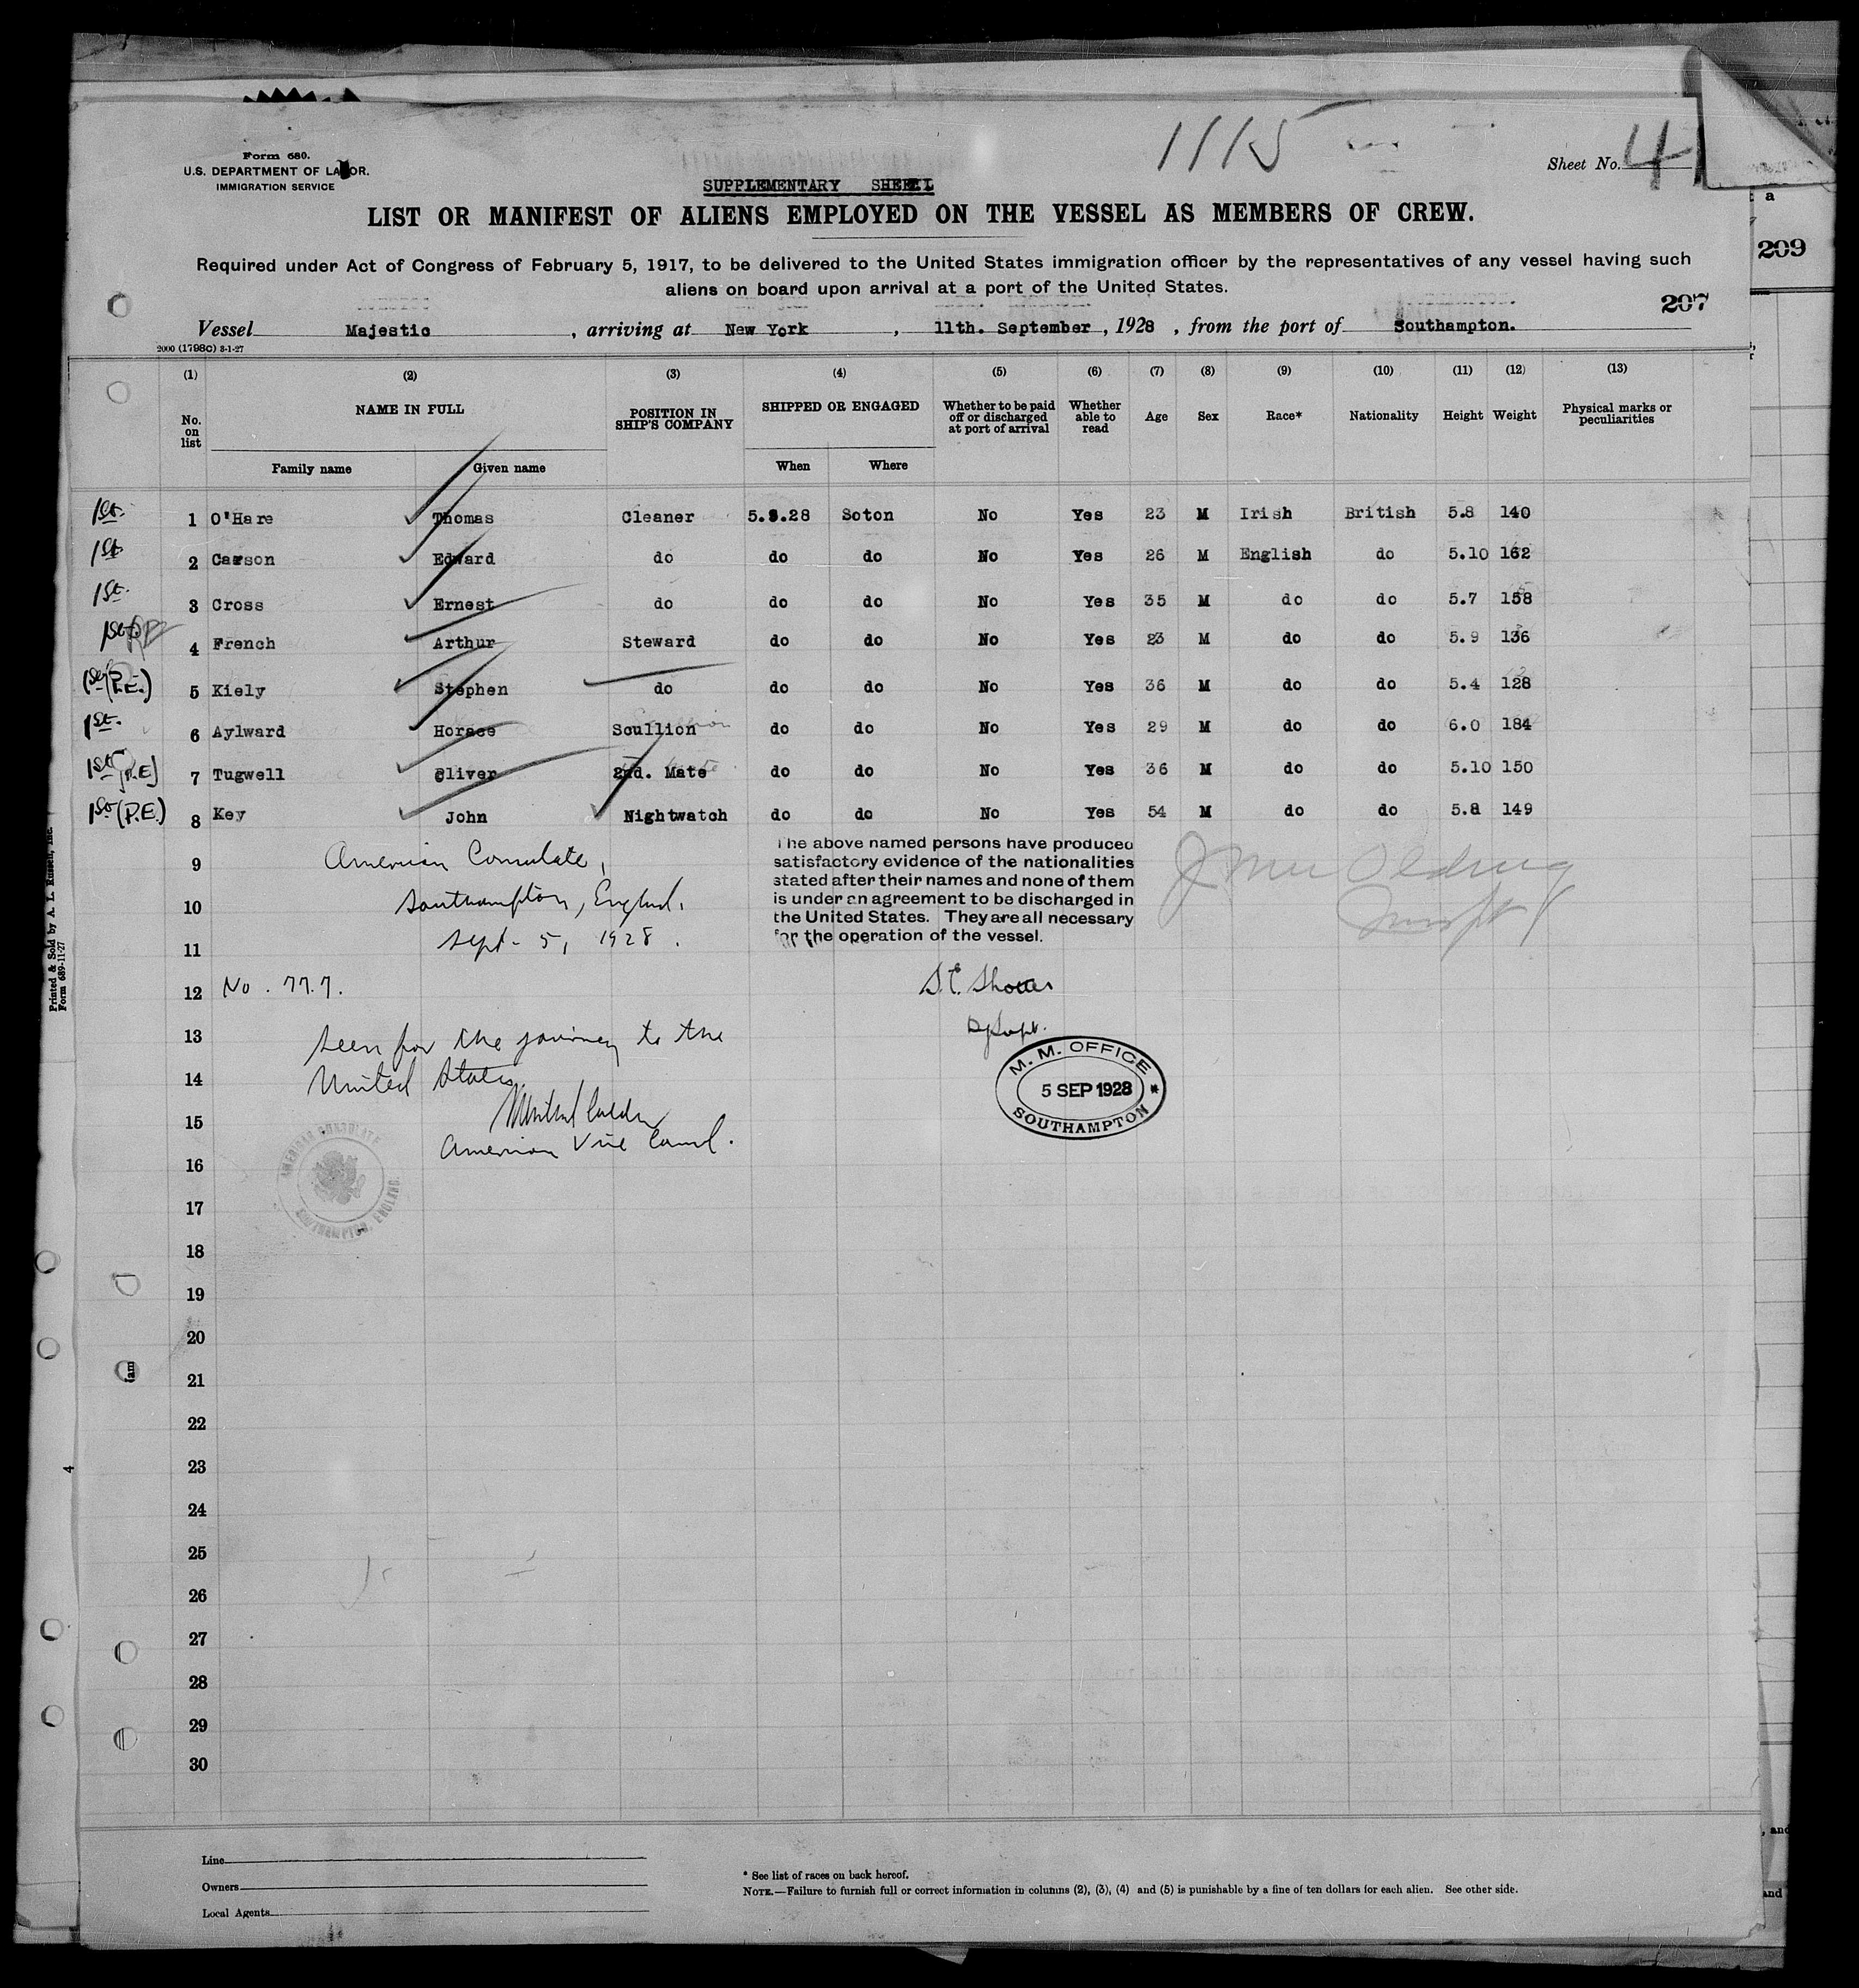 1115
Form 689.
U.S. DEPARTMENT OF LABOR.
IMMIGRATION SERVICE
Sheet No. 4
SUPPLEMENTARY SHEET
LIST OR MANIFEST OF ALIENS EMPLOYED ON THE VESSEL AS MEMBERS OF CREW.
Required under Act of Congress of February 5, 1917, to be delivered to the United States immigration officer by the representatives of any vessel having such
aliens on board upon arrival at a port of the United States.
209
207
Vessel Majestic , arriving at New York , 11th. September , 1928 , from the port of Southampton.
2000 (1798c) 3-1-27
(1) (2) (3) (4) (5) (6) (7) (8) (9) (10) (11) (12) (13)
No. on list NAME IN FULL POSITION IN SHIP'S COMPANY SHIPPED OR ENGAGED Whether to be paid off or discharged at port of arrival Whether able to read Age Sex Race* Nationality Height Weight Physical marks or peculiarities
Family name Given name When Where
1st. 1 O'Hare Thomas Cleaner 5.9.28 Soton No Yes 23 M Irish British 5.8 140
1st 2 Carson Edward do do do No Yes 26 M English do 5.10 162
1st. 3 Cross Ernest do do do No Yes 35 M do do 5.7 158
1st 4 French Arthur Steward do do No Yes 23 M do do 5.9 136
(P.E.) 5 Kiely Stephen do do do No Yes 36 M do do 5.4 128
1st. 6 Aylward Horace Scullion do do No Yes 29 M do do 6.0 184
1st (P.E) 7 Tugwell Oliver 2nd. Mate do do No Yes 36 M do do 5.10 150
1st (P.E.) 8 Key John Nightwatch do do No Yes 54 M do do 5.8 149
The above named persons have produced
satisfactory evidence of the nationalities
stated after their names and none of them
is under an agreement to be discharged in
the United States. They are all necessary
for the operation of the vessel.
9 American Consulate,
10 Southampton, England.
11 Sept. 5, 1928.
12 No. 777.
13 Seen for the journey to the
14 United States.
15
American Vice Consul.
16
AMERICAN CONSULATE
SOUTHAMPTON, ENGLAND.
Dy Supt.
M. M. OFFICE
5 SEP 1928
SOUTHAMPTON
17
18
19
20
21
22
23
24
25
26
27
28
29
30
Printed & Sold by A. L. Russell, Inc.
Form 689-11-27
4
Line
Owners
Local Agents
* See list of races on back hereof.
NOTE.—Failure to furnish full or correct information in columns (2), (3), (4) and (5) is punishable by a fine of ten dollars for each alien. See other side.